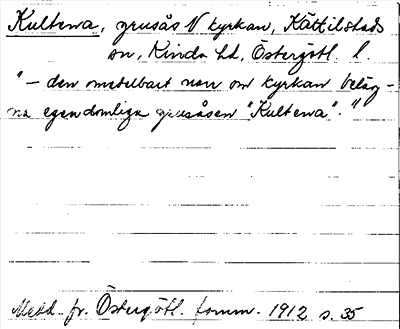 Kultewa, grusås N kyrkan, Kättilstads
sn, Kinda hd, Östergötl. l.
"— den omedelbart norr om kyrkan beläg-
na egendomliga grusåsen "Kultewa"."
Medd. fr. Östergötl. fornm. 1912 s. 35